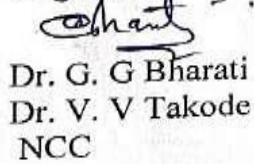 Dr. G. G Bharati
Dr. V. V Takode
NCC